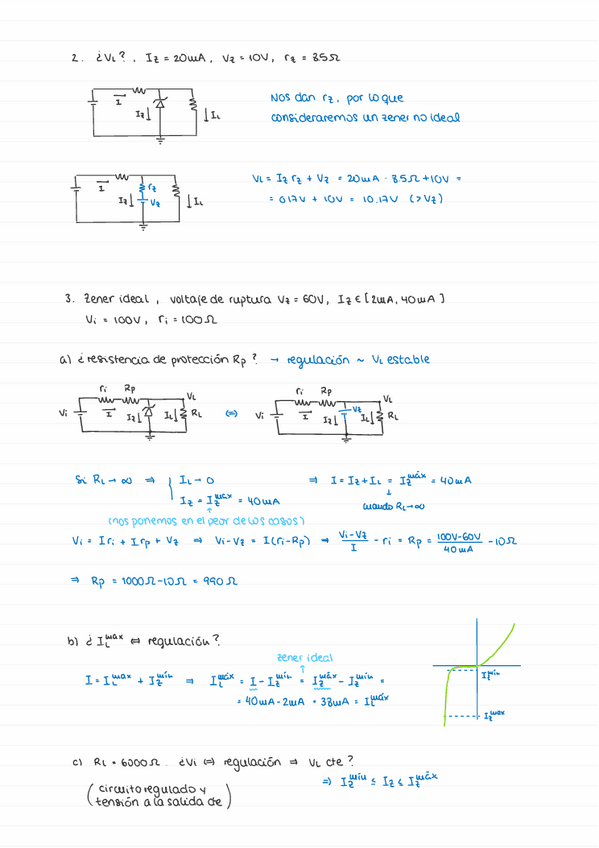 2. ¿VL?. IZ = 20mA, VZ = 10V, rZ = 8.5Ω
I IZ↓ ↓IL
Nos dan rZ, por lo que
consideraremos un zener no ideal
I IZ↓ rZ VZ ↓IL
VL = IZ rZ + VZ = 20mA · 8.5Ω + 10V =
= 0.17V + 10V = 10.17V (>VZ)
3. Zener ideal, voltaje de ruptura VZ = 60V, IZ ∈ [2mA, 40mA]
Vi = 100V, ri = 10Ω
a) ¿resistencia de protección Rp? → regulación ~ VL estable
ri Rp VL
Vi I IZ↓ IL↓ RL
(=)
ri Rp VL
Vi I IZ↓ VZ IL↓ RL
Si RL → ∞ ⇒ { IL → 0 ⇒ I = IZ + IL = IZ^máx = 40mA
IZ = IZ^max = 40mA
cuando RL→∞
(nos ponemos en el peor de los casos)
Vi = I ri + I rp + VZ ⇒ Vi - VZ = I(ri - Rp) → (Vi - VZ)/I - ri = Rp = (100V - 60V)/40mA - 10Ω
⇒ Rp = 1000Ω - 10Ω = 990Ω
b) ¿IL^max ⇔ regulación?
zener ideal
I = IL^max + IZ^mín ⇒ IL^máx = I - IZ^mín = IZ^máx - IZ^mín =
= 40mA - 2mA = 38mA = IL^máx
IZ^mín
IZ^max
c) RL = 6000Ω. ¿Vi ⇔ regulación ⇒ VL cte?
(circuito regulado y
tensión a la salida cte)
⇒ IZ^mín ≤ IZ ≤ IZ^máx